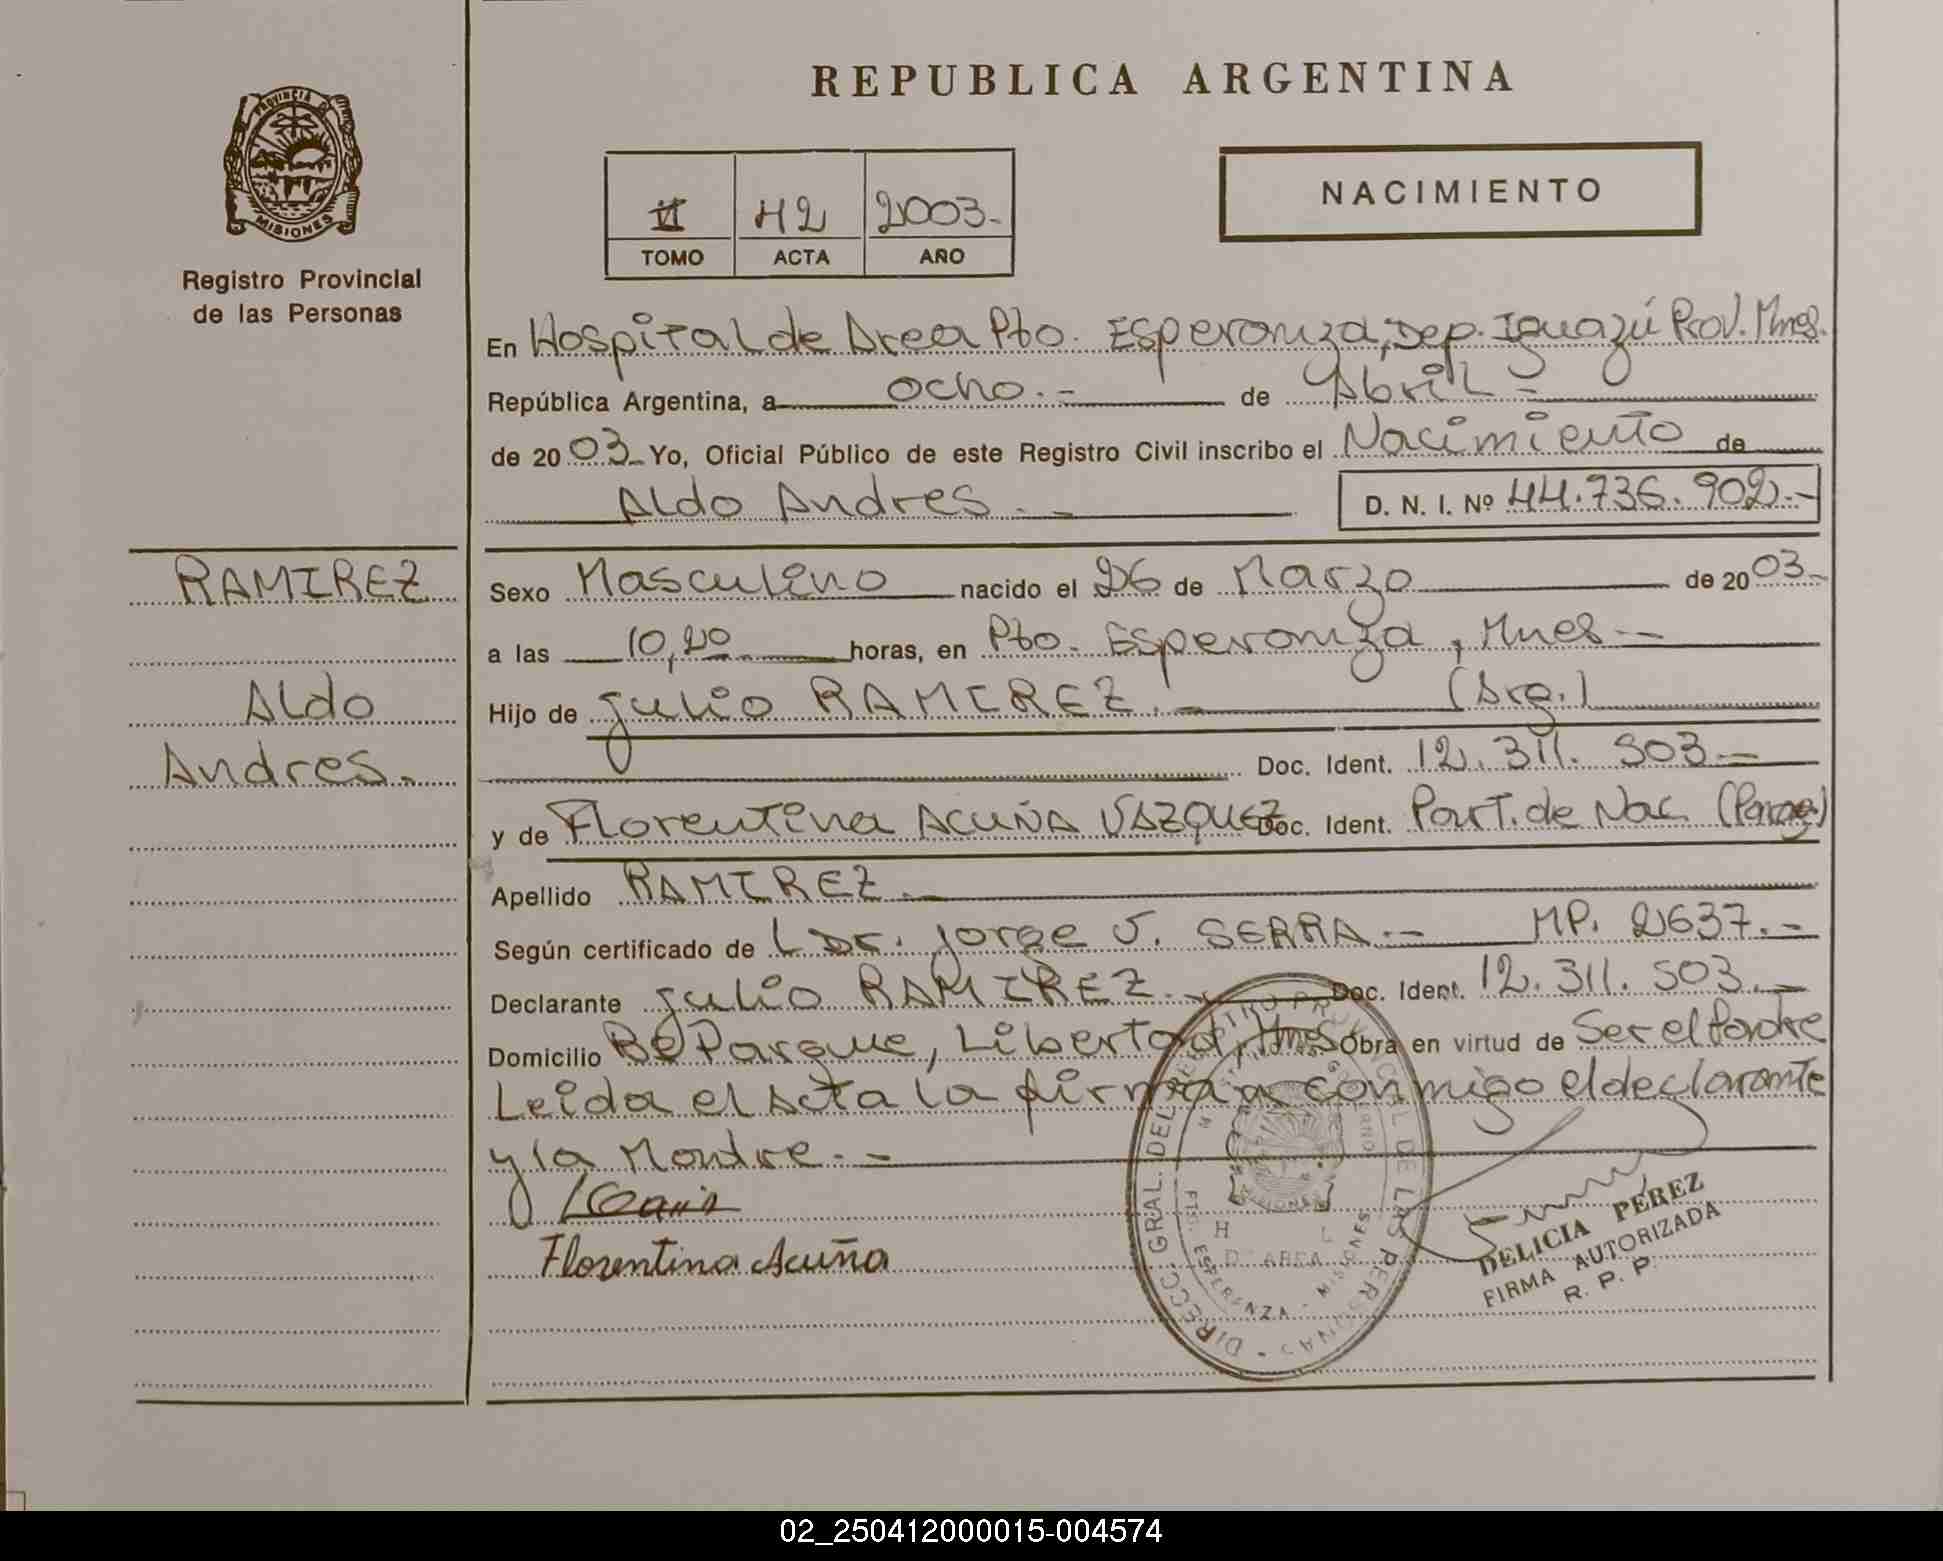 REPUBLICA ARGENTINA
NACIMIENTO
II 42 2003-
TOMO ACTA AÑO
PROVINCIA DE
MISIONES
Registro Provincial
de las Personas
En Hospital de Area Pto. Esperanza, Dep. Iguazú Prov. Mnes.
República Argentina, a ocho.- de Abril -
de 2003- Yo, Oficial Público de este Registro Civil inscribo el Nacimiento de
Aldo Andres.- D. N. I. Nº 44.736.902.-
RAMIREZ
Aldo
Andres.-
Sexo Masculino nacido el 26 de Marzo de 2003-
a las 10,20 horas, en Pto. Esperanza, Mnes.-
Hijo de Julio RAMIREZ.- (Arg.)
Doc. Ident. 12.311.503-
y de Florentina ACUÑA VAZQUEZ Doc. Ident. Part. de Nac. (Parag)
Apellido RAMIREZ.-
Según certificado de Dr. Jorge J. SERRA.- MP. 2637.-
Declarante Julio RAMIREZ.- Doc. Ident. 12.311.503.-
Domicilio Bº Parque, Libertad, Mnes Obra en virtud de Ser el Padre
Leida el Acta la firman conmigo el declarante
y la Madre.-
Florentina Acuña
DIRECC. GRAL. DEL REGISTRO PROVINCIAL DE LAS PERSONAS
PTO. ESPERANZA - MISIONES
DELICIA PEREZ
FIRMA AUTORIZADA
R. P. P.
02_250412000015-004574